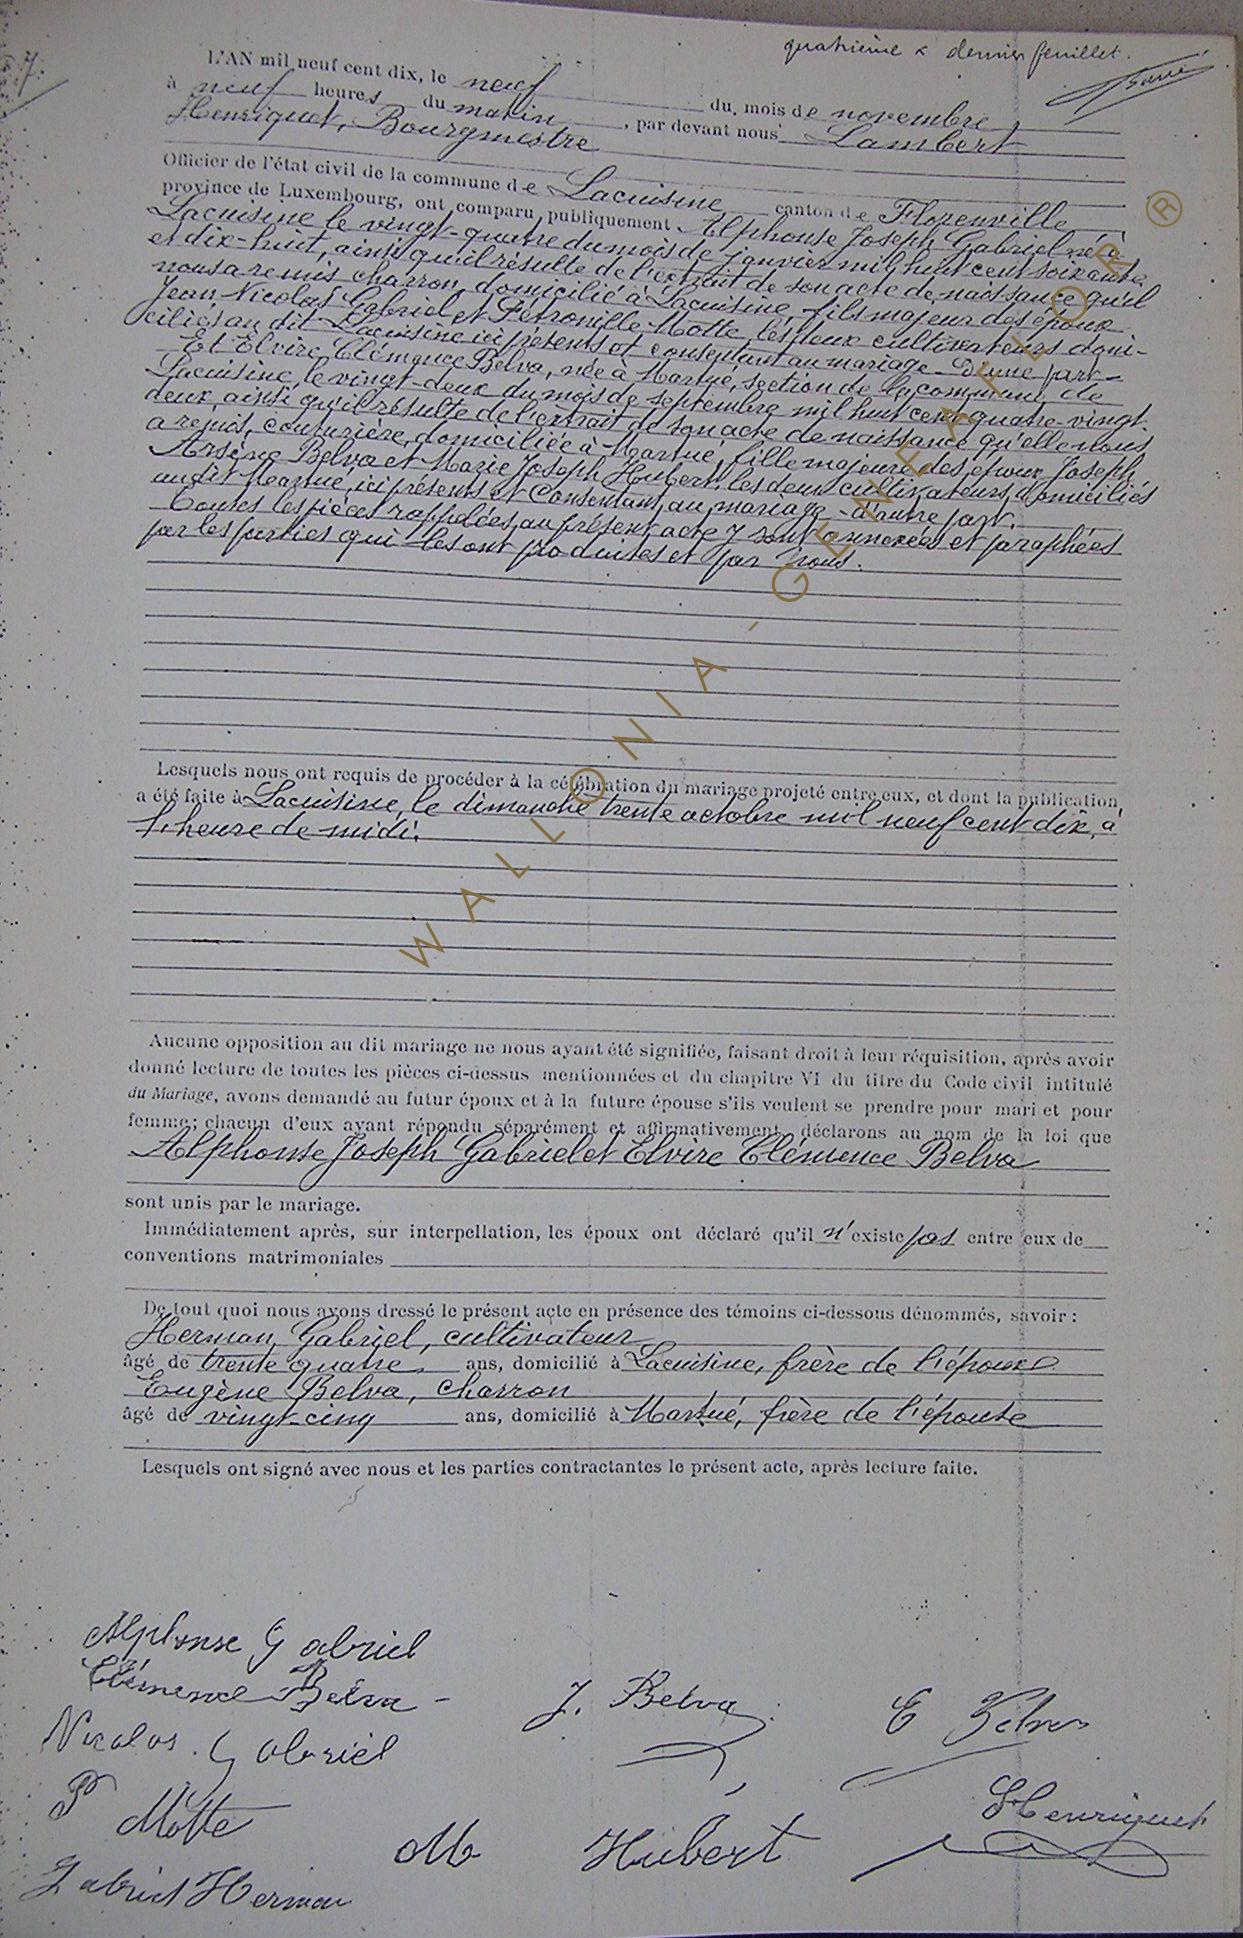 quatrième & dernier feuillet.
7.
L'AN mil neuf cent dix, le neuf du mois de novembre
à neuf heures du matin, par devant nous Lambert
Henriquet, Bourgmestre
Officier de l'état civil de la commune de Lacuisine canton de Florenville
province de Luxembourg, ont comparu publiquement Alphonse Joseph Gabriel né à
Lacuisine le vingt-quatre du mois de janvier mil huit cent soixante
et dix-huit, ainsi qu'il résulte de l'extrait de son acte de naissance qu'il
nous a remis, charron, domicilié à Lacuisine, fils majeur des époux
Jean Nicolas Gabriel et Pétronille Motte, les deux cultivateurs domi-
ciliés au dit Lacuisine ici présents et consentant au mariage - D'une part -
Et Elvire Clémence Belva, née à Martué, section de la commune de
Lacuisine, le vingt-deux du mois de septembre mil huit cent quatre-vingt
deux, ainsi qu'il résulte de l'extrait de son acte de naissance qu'elle nous
a remis, couturière, domiciliée à Martué, fille majeure des époux Joseph
Arsène Belva et Marie Joseph Hubert, les deux cultivateurs, domiciliés
au dit Martué, ici présents et consentant au mariage - d'autre part.
Toutes les pièces rappelées au présent acte y sont annexées et paraphées
par les parties qui les ont produites et par nous.
Lesquels nous ont requis de procéder à la célébration du mariage projeté entre eux, et dont la publication
a été faite à Lacuisine, le dimanche trente octobre mil neuf cent dix, à
l'heure de midi.
Aucune opposition au dit mariage ne nous ayant été signifiée, faisant droit à leur réquisition, après avoir
donné lecture de toutes les pièces ci-dessus mentionnées et du chapitre VI du titre du Code civil intitulé
du Mariage, avons demandé au futur époux et à la future épouse s'ils veulent se prendre pour mari et pour
femme; chacun d'eux ayant répondu séparément et affirmativement, déclarons au nom de la loi que
Alphonse Joseph Gabriel et Elvire Clémence Belva
sont unis par le mariage.
Immédiatement après, sur interpellation, les époux ont déclaré qu'il n'existe pas entre eux de
conventions matrimoniales
De tout quoi nous avons dressé le présent acte en présence des témoins ci-dessous dénommés, savoir :
Herman Gabriel, cultivateur
âgé de trente quatre ans, domicilié à Lacuisine, frère de l'époux
Eugène Belva, charron
âgé de vingt-cinq ans, domicilié à Martué, frère de l'épouse
Lesquels ont signé avec nous et les parties contractantes le présent acte, après lecture faite.
Alphonse Gabriel
Clémence Belva
J. Belva
E Belva
Nicolas Gabriel
P Motte
M Hubert
L Henriquet
Gabriel Herman
WALLONIA - GENEAFLOR ®